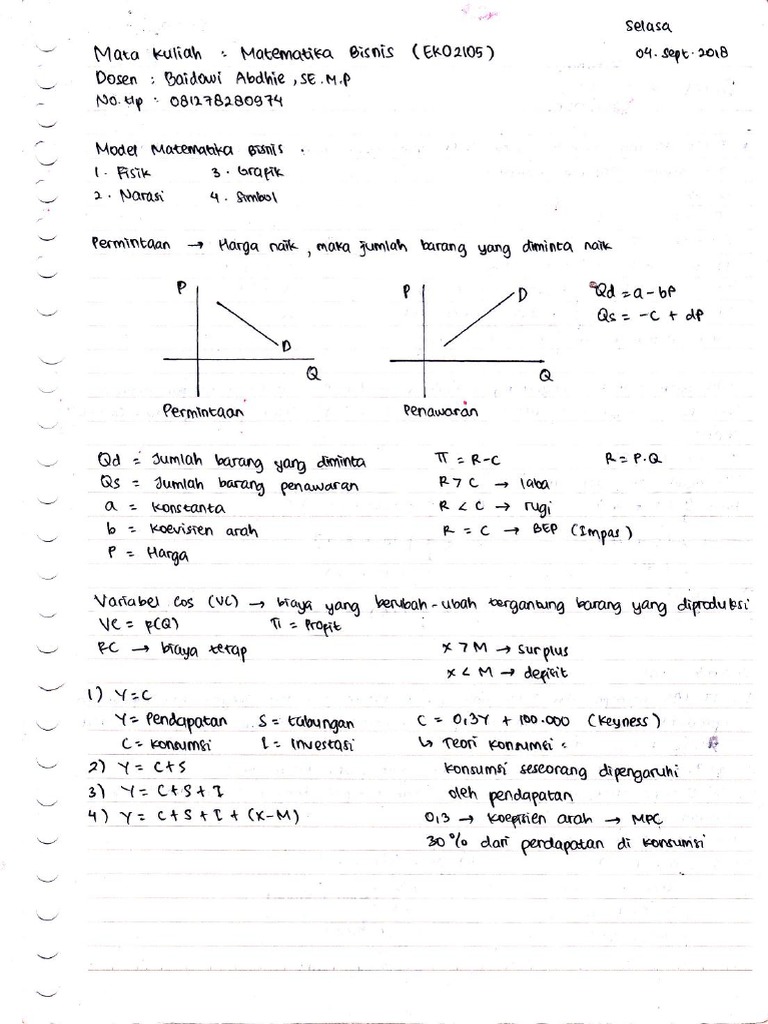 Selasa
04. Sept. 2018
Mata Kuliah : Matematika Bisnis (EKO2105)
Dosen : Baidowi Abdhie, SE.M.P
No. Hp : 081278280974
Model Matematika Bisnis :
1. Fisik 3. Grafik
2. Narasi 4. Simbol
Permintaan → Harga naik, maka jumlah barang yang diminta naik
P D Q
Permintaan
P D Q
Penawaran
Qd = a - bP
Qs = -c + dP
Qd = Jumlah barang yang diminta
Qs = Jumlah barang penawaran
a = Konstanta
b = Koevisien arah
P = Harga
π = R-C R = P.Q
R > C → laba
R < C → rugi
R = C → BEP (Impas)
Variabel Cos (VC) → biaya yang berubah-ubah tergantung barang yang diproduksi
VC = f(Q) π = Profit
FC → biaya tetap
x > M → surplus
x < M → defisit
1) Y = C
Y = Pendapatan S = tabungan
C = konsumsi I = Investasi
2) Y = C+S
3) Y = C+S+I
4) Y = C+S+I+(X-M)
C = 0,3Y + 100.000 (Keyness)
↳ Teori Konsumsi :
konsumsi seseorang dipengaruhi
oleh pendapatan
0,3 → koefisien arah → MPC
30% dari pendapatan di konsumsi